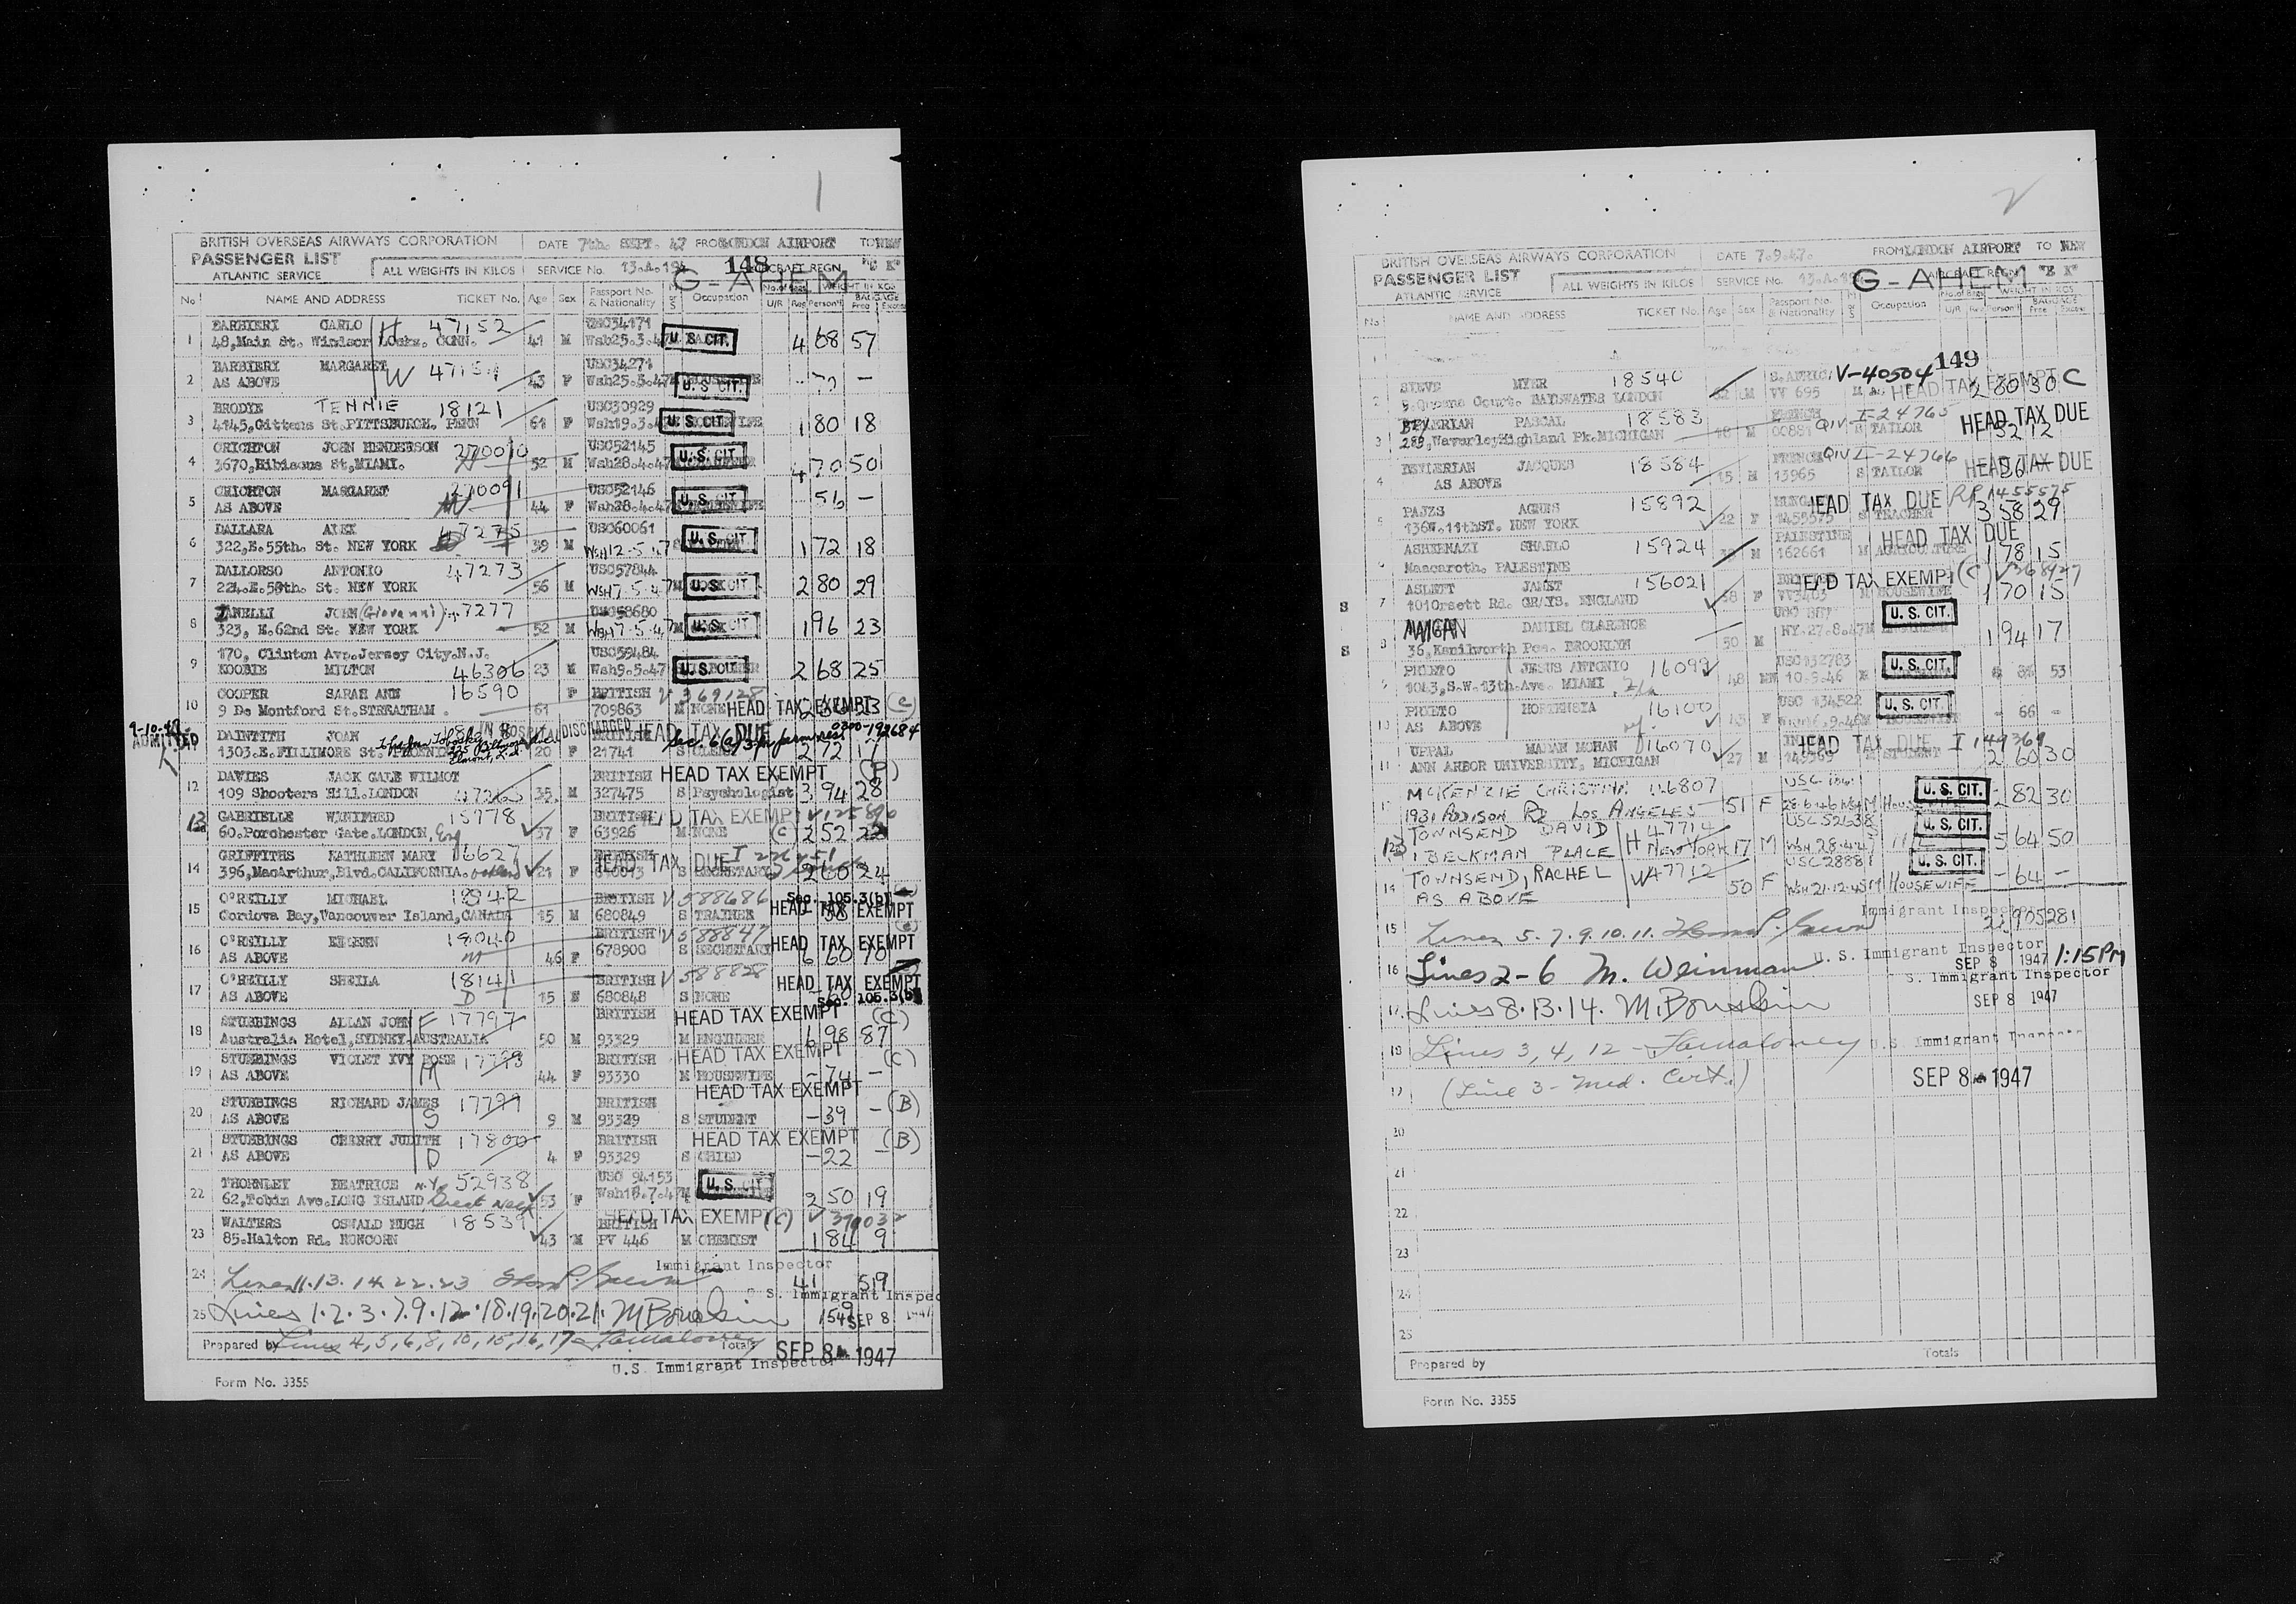 1
BRITISH OVERSEAS AIRWAYS CORPORATION DATE 7th. SEPT. 47 FROM LONDON AIRPORT TO NEW
PASSENGER LIST
ATLANTIC SERVICE ALL WEIGHTS IN KILOS SERVICE No. 13.A.19 148 AIRCRAFT REGN. G-AHEM
No NAME AND ADDRESS TICKET No. Age Sex Passport No. & Nationality M or S Occupation No. of Bags U/R Reg WEIGHT IN KGS Person'l BAGGAGE Free Excess
BARBIERI CARLO H. 47152 USC34171
1 48,Main St. Windsor Locks. CONN. 41 M Wsh25.3.47 U.S. CIT. 4 68 57
BARBIERI MARGARET W USC34271
2 AS ABOVE 43 F Wsh25.3.47 U.S. CIT. -
BRODYE TENNIE 18121 USC30929
3 4145,Gittens St.PITTSBURGH. PENN 61 F Wsh19.3.4 U.S. CIT. 1 80 18
CRICHTON JOHN HENDERSON 270090 USC52145
4 3670,Hibiscus St,MIAMI. 52 M Wsh28.4.47 U.S. CIT. 4 70 50
CRICHTON MARGARET 270091 USC52146
5 AS ABOVE 44 F Wsh28.4.47 U.S. CIT. 56 -
DALLARA ALEX 47275 USC60061
6 322,E.55th. St. NEW YORK 39 M WSH 12-5.47 U.S. CIT. 1 72 18
DALLORSO ANTONIO 47273 USC57844
7 224.E.58th. St. NEW YORK 56 M WSH 7-5.47 M U.S. CIT 2 80 29
ZANELLI JOHN (Giovanni) 47277 USC58680
8 323, E.62nd St. NEW YORK 52 M WSH 7-5.47 M U.S. CIT 1 96 23
170, Clinton Avp.Jersey City.N.J. USC59484
9 KOOBIE MILTON 46306 23 M Wsh9.5.47 U.S. CIT. 2 68 25
COOPER SARAH ANN 16590 F BRITISH V 369128
10 9 De Montford St.STREATHAM. 61 709863 M NONE HEAD TAX EXEMPT (C)
9-10-47 ADMITTED DAINTITH JOAN IN HOSPITAL DISCHARGED BRITISH HEAD TAX DUE
1303.E.FILLIMORE St. PHOENIX 20 F 21741 2 72
DAVIES JACK GALE WILMOT BRITISH HEAD TAX EXEMPT (P)
12 109 Shooters Hill.LONDON 35. M 327475 S Psychologist 3 94 28
GABRIELLE WINIFRED 15778 BRITISH HEAD TAX EXEMPT
13 60.Porchester Gate.LONDON, Eng 37 F 63926 M NONE (C) 2 52 22
GRIFFITHS KATHLEEN MARY 16627 BRITISH HEAD TAX DUE
14 396,MacArthur,Blvd.CALIFORNIA. 21 F S SECRETARY 2 60 24
O'REILLY MICHAEL 18942 BRITISH V 588686 Sec. 105.3(b)
15 Cordova Bay,Vancouver Island,CANADA 15 M 680849 S TRAINEE HEAD TAX EXEMPT
O'REILLY EILEEN 18040 BRITISH V 588847
16 AS ABOVE M 46 F 678900 S SECRETARY HEAD TAX EXEMPT 6 60 70
O'REILLY SHEILA 18141 BRITISH V 588828 HEAD TAX EXEMPT
17 AS ABOVE D 15 F 680848 S NONE Sec. 105.3(b)
STUBBINGS ALLAN JOHN F 17797 BRITISH HEAD TAX EXEMPT (C)
18 Australia Hotel,SYDNEY.AUSTRALIA 50 M 93329 M ENGINEER 6 98 87
STUBBINGS VIOLET IVY ROSE 17798 BRITISH HEAD TAX EXEMPT (C)
19 AS ABOVE M 44 F 93330 M HOUSEWIFE - 74 -
STUBBINGS RICHARD JAMES 17799 BRITISH HEAD TAX EXEMPT (B)
20 AS ABOVE S 9 M 93329 S STUDENT - 39 -
STUBBINGS CHERRY JUDITH 17800 BRITISH HEAD TAX EXEMPT (B)
21 AS ABOVE D 4 F 93329 S CHILD - 22 -
THORNLEY BEATRICE N.Y. 52938 USC 94153
22 62,Tobin Ave.LONG ISLAND, Great Neck 53 F U.S. CIT. 2 50 19
WALTERS OSWALD HUGH 18539 BRITISH HEAD TAX EXEMPT (C)
23 85.Halton Rd. RUNCORN 43 M PV 446 M CHEMIST 1 84 9
Immigrant Inspector
24 Lines 11.13.14.22.23 41 519
U.S. Immigrant Inspec
25 Lines 1.2.3.7.9.12.18.19.20.21. 1549 SEP 8 1947
Prepared by Lines 4,5,6,8,10,15,16,17 Totals SEP 8 1947
U.S. Immigrant Inspector
Form No. 3355
2
BRITISH OVERSEAS AIRWAYS CORPORATION DATE 7.9.47. FROM LONDON AIRPORT TO NEW
PASSENGER LIST
ATLANTIC SERVICE ALL WEIGHTS IN KILOS SERVICE No. 13.A. AIRCRAFT REGN. G-AHEM
No NAME AND ADDRESS TICKET No. Age Sex Passport No. & Nationality M or S Occupation No. of Bags U/R WEIGHT IN KGS Person'l BAGGAGE Free Excess
1 149
SIEVE MYER 18540 S.AFRIC V-40504 HEAD TAX EXEMPT C
2 Queens Court. BAYSWATER LONDON 52 M VV 695 M 2 80 30
BEYLERIAN PASCAL 18583 FRENCH QIV I-24765 HEAD TAX DUE
3 289,Waverley Highland Pk.MICHIGAN 18 M 00881 S TAILOR
BEYLERIAN JACQUES 18584 FRENCH QIV I-24766 HEAD TAX DUE
4 AS ABOVE 15 M 13965 S TAILOR
PAJZS AGNES 15892 HEAD TAX DUE RP 1455575
5 136W.11thST. NEW YORK 22 F S TEACHER 3 58 29
ASHKENAZI SHAULO 15924 PALESTINE HEAD TAX DUE
6 Maacaroth. PALESTINE M 162661 M AGRICULTURE 1 78 15
ASLETT JANET 156021 HEAD TAX EXEMPT (C)
S 7 101Orsett Rd. GRAYS. ENGLAND F VV3403 M HOUSEWIFE 1 70 15
DANIEL CLARENCE U.S. CIT.
S 8 36,Kenilworth Pce. BROOKLYN 50 M NY.27.8.47M 1 94 17
PRIETO JESUS ANTONIO 16099 USC132783 U.S. CIT.
9 1043,S.W.13th.Ave. MIAMI 48 M 10-9.46 53
PRIETO HORTENSIA 16100 USC 134522 U.S. CIT.
10 AS ABOVE F M HOUSEWIFE - 66 -
UPPAL MADAN MOHAN 16070 HEAD TAX DUE I 149369
11 ANN ARBOR UNIVERSITY. MICHIGAN 27 M 149369 M STUDENT 2 60 30
MCKENZIE CHRISTINA 126807 U.S. CIT.
1931 ADDISON Rd LOS ANGELES 51 F M House 2 82 30
TOWNSEND DAVID H 47714 USC 52638 U.S. CIT.
13 1 BECKMAN PLACE NEW YORK 17 M WSH 28.4.47 5 64 50
TOWNSEND, RACHEL W 47712 USC28881 U.S. CIT.
14 AS ABOVE 50 F WSH 21.12.45 M HOUSEWIFE - 64 -
Immigrant Inspector
15 Lines 5.7.9.10.11. 21 905 281
16 Lines 2-6 M. Weinman U.S. Immigrant Inspector SEP 8 1947 1:15 PM
S. Immigrant Inspector
17 Lines 8.13.14. SEP 8 1947
18 Lines 3, 4, 12 U.S. Immigrant
19 (Line 3 - Med. Cert.) SEP 8 1947
20
21
22
23
24
25
Prepared by Totals
Form No. 3355